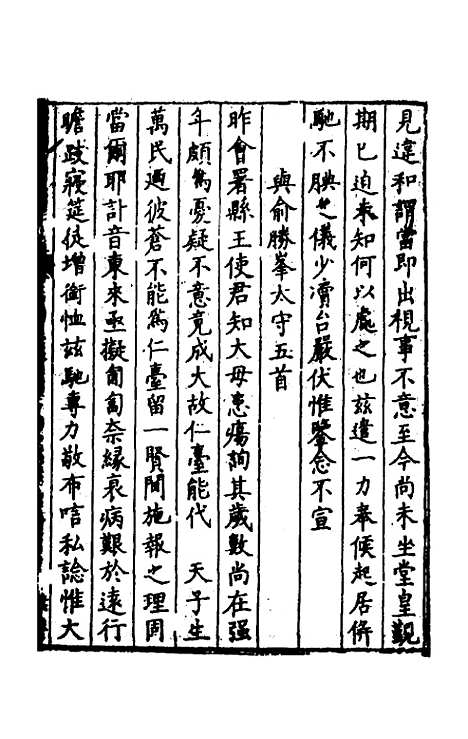 見違和謂當即出視事不意至今尚未坐堂皇覲
期已迫未知何以處之也玆遣一力奉候起居併
馳不腆之儀少凟台嚴伏惟鑒念不宣
與俞勝峯太守五首
昨會署縣王使君知大母患瘍詢其歲數尚在强
年頗爲憂疑不意竟成大故仁臺能代 天子生
萬民過彼蒼不能爲仁臺留一賢閫施報之理固
當爾耶訃音東來亟擬匍匐奈緣衰病艱於遠行
瞻跂寢筵徒增銜恤玆馳專力敬布唁私諗惟大